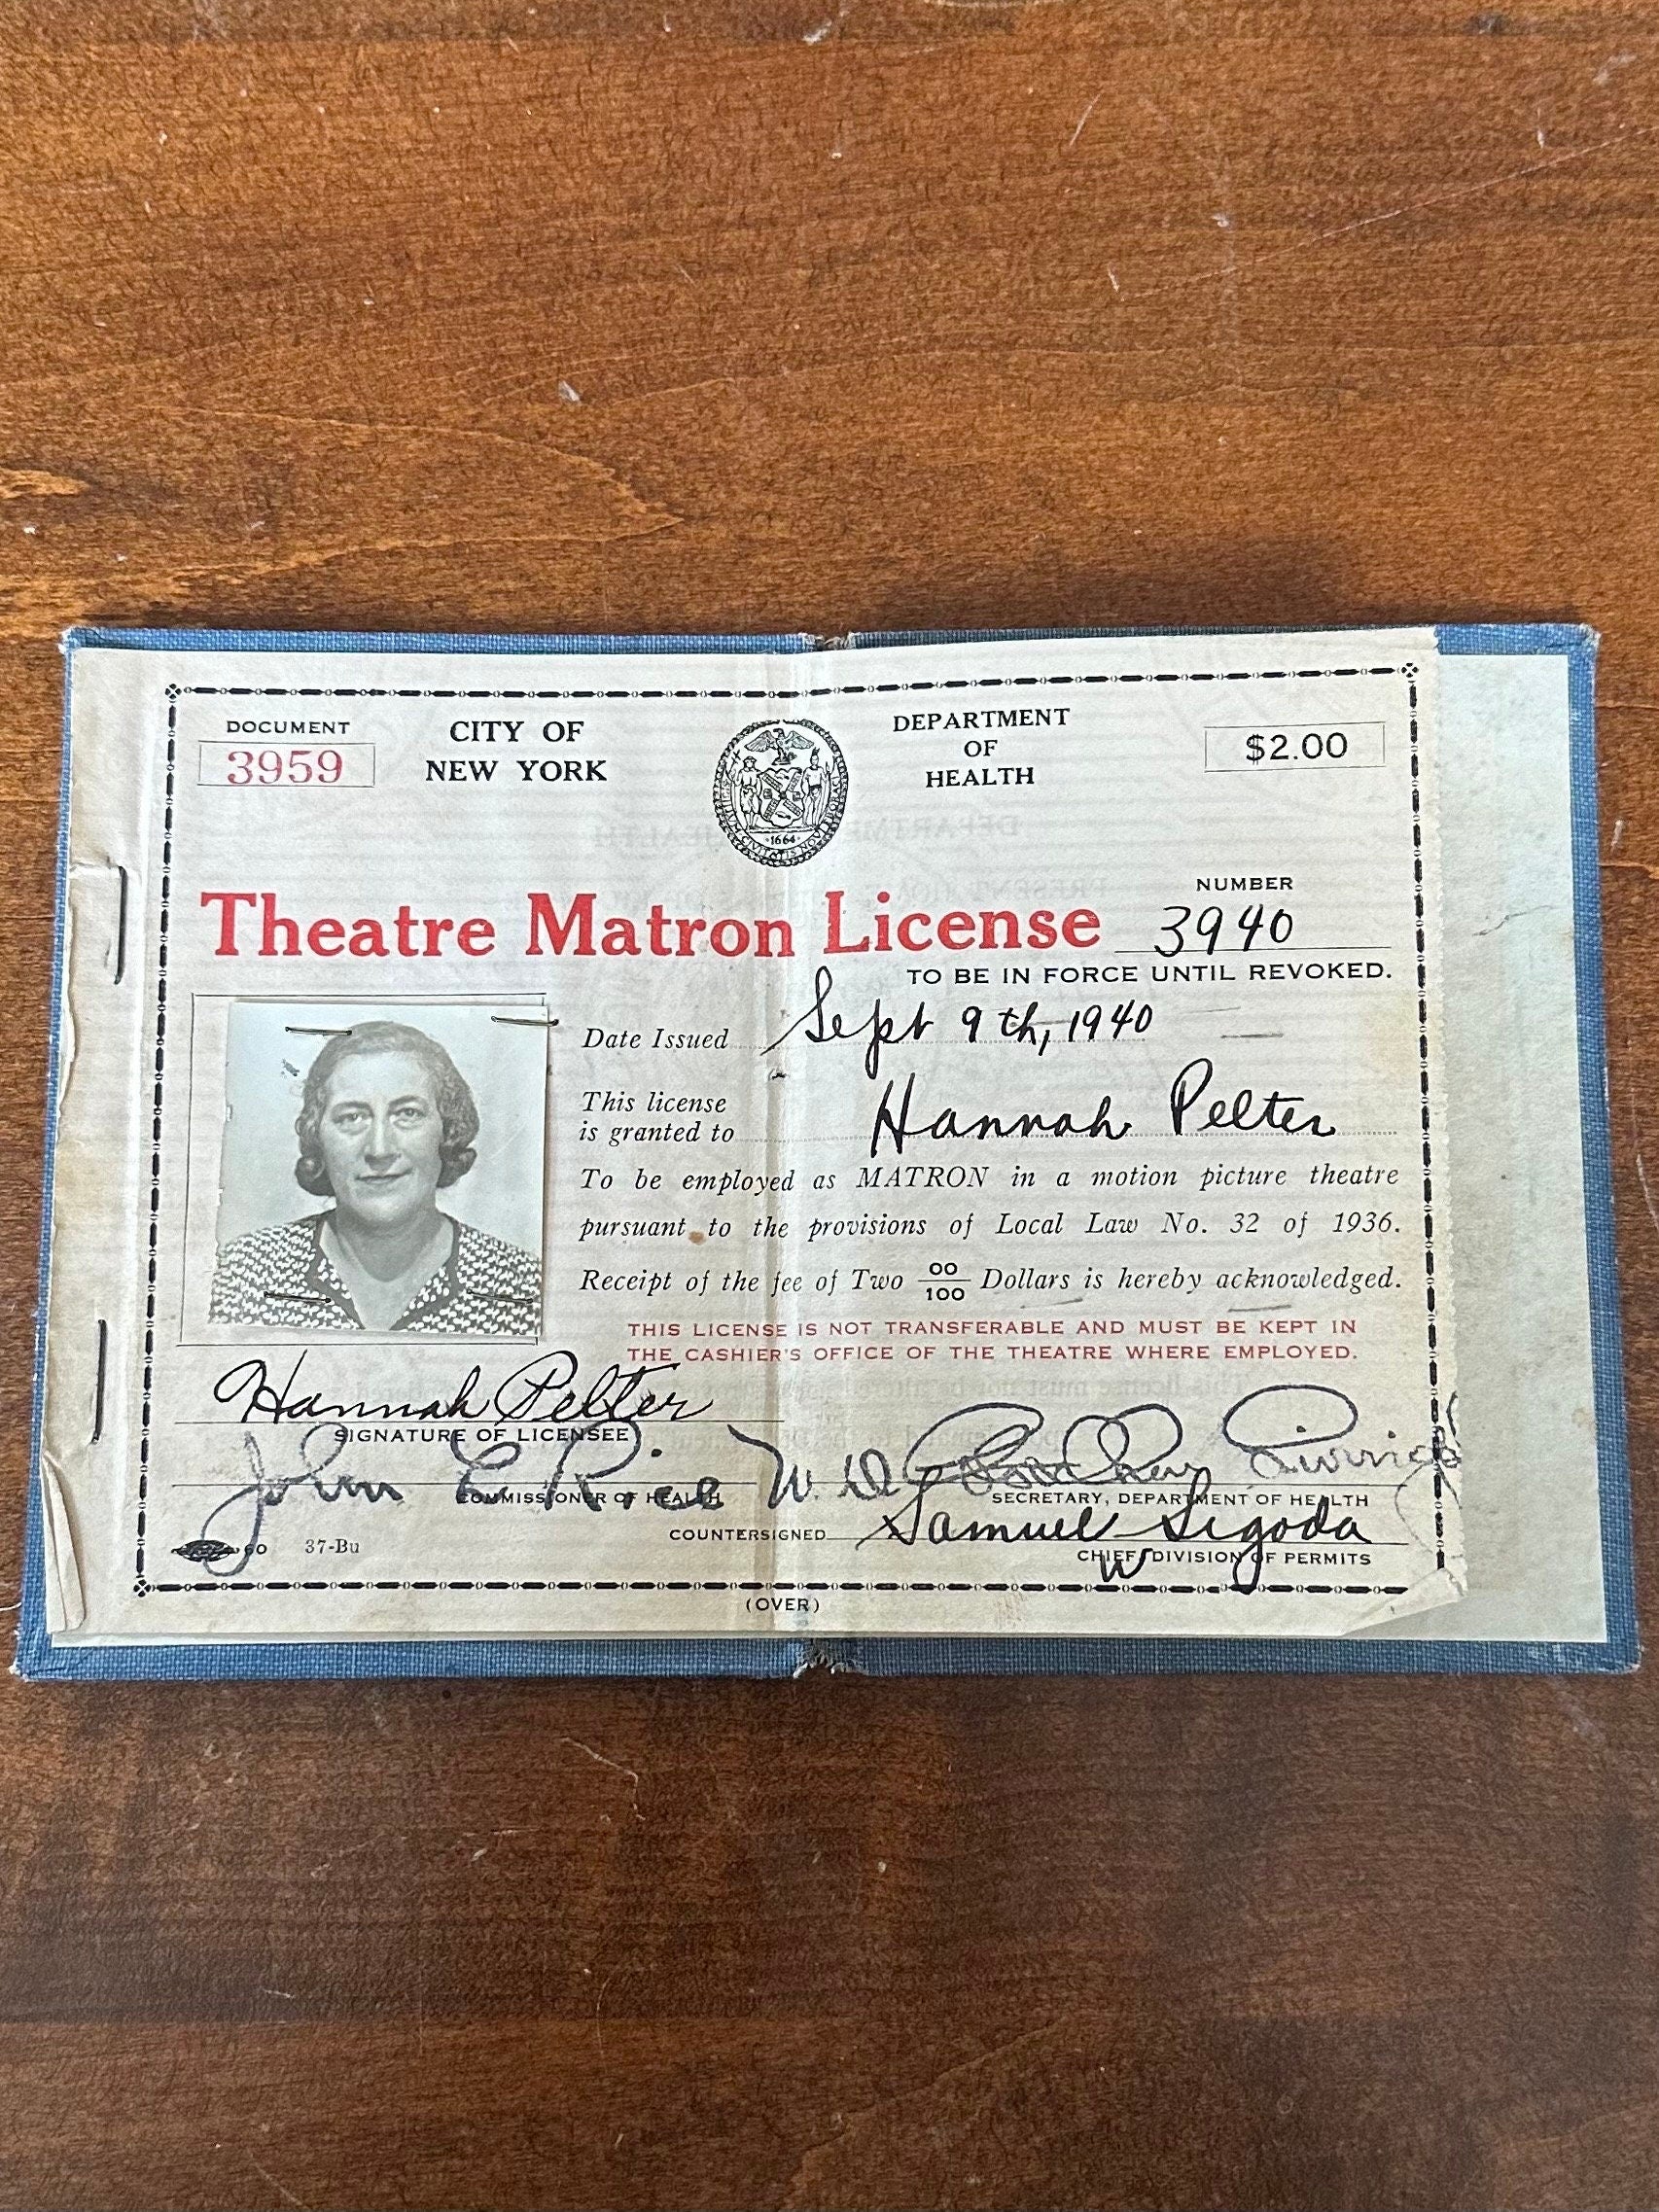 DOCUMENT
3959
CITY OF
NEW YORK
1664
DEPARTMENT
OF
HEALTH
$2.00
Theatre Matron License
NUMBER
3940
TO BE IN FORCE UNTIL REVOKED.
Date Issued Sept 9th, 1940
This license
is granted to Hannah Pelter
To be employed as MATRON in a motion picture theatre
pursuant to the provisions of Local Law No. 32 of 1936.
Receipt of the fee of Two 00/100 Dollars is hereby acknowledged.
THIS LICENSE IS NOT TRANSFERABLE AND MUST BE KEPT IN
THE CASHIER'S OFFICE OF THE THEATRE WHERE EMPLOYED.
Hannah Pelter
SIGNATURE OF LICENSEE
John L Rice M.D.
COMMISSIONER OF HEALTH
SECRETARY, DEPARTMENT OF HEALTH
COUNTERSIGNED Samuel Sigoda
CHIEF, DIVISION OF PERMITS
W
37-Bu
(OVER)